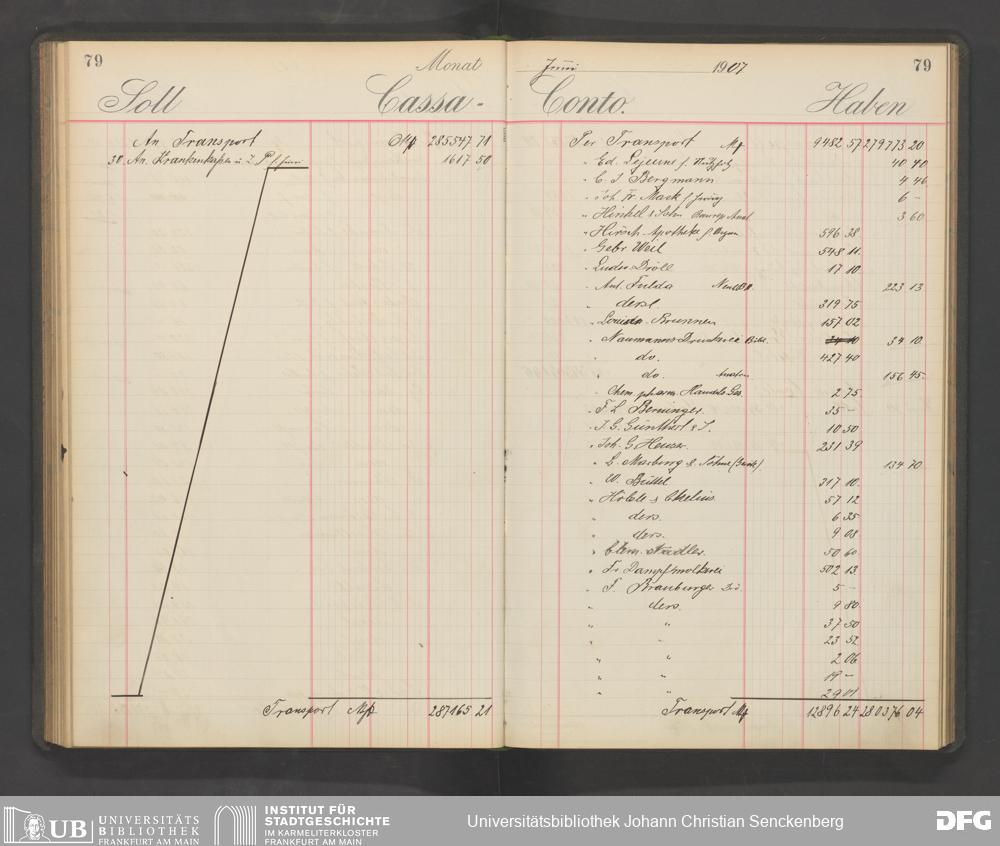 79
Monat
Soll Cassa-
An Transport M 285547 71
30. An Krankenkassen 1617 50
Transport M 287165 21
Juni 1907 79
Conto. Haben
Per Transport M 9482 57 279773 20
" Ed. Lejeune f. 40 40
" C. J. Bergmann 4 46
" Joh. Fr. Mack f. 6 -
" Hinkel & Sohn 3 60
" Hirsch-Apotheke f. 596 38
" Gebr. Weil 548 11
" Dröll 17 10
" Ant. Fulda 223 13
" dersl 319 75
" Louisa-Brunnen 157 02
" Naumanns Druckerei Bibl. 34 10 34 10
" do. 427 40
" do. 156 45
" Chem. pharm. Handels Ges. 2 75
" F. L. Berninger 35 -
" J. G. Günther & S. 10 50
" Joh. G. Heuser 231 39
" L. Marburg & Söhne 134 70
" W. Büttel 317 10
" & Cnelius 57 12
" ders. 6 35
" ders. 9 08
" Clem. Stadler 50 60
" Fr. Dampfmolkerei 502 13
" F. Braunburger 5 -
" ders. 9 80
" " 37 50
" " 23 52
" " 2 06
" " 19 -
" " 29 01
Transport M 12896 24 280376 04
UB UNIVERSITÄTS
BIBLIOTHEK
FRANKFURT AM MAIN
INSTITUT FÜR
STADTGESCHICHTE
IM KARMELITERKLOSTER
FRANKFURT AM MAIN
Universitätsbibliothek Johann Christian Senckenberg
DFG